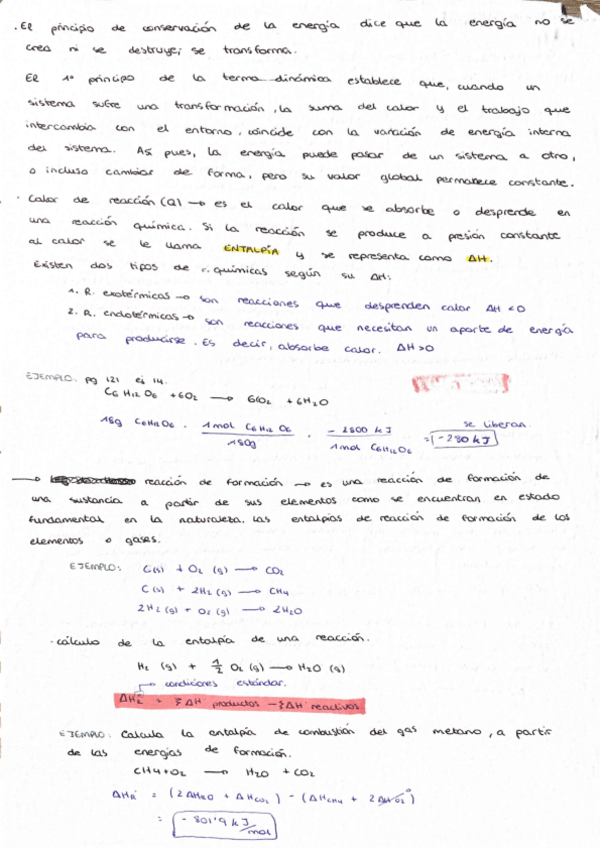 . El principio de conservación de la energía dice que la energía no se
crea ni se destruye; se transforma.
El 1º principo de la termo dinámica establece que, cuando un
sistema sufre una transformación, la suma del calor y el trabajo que
intercambia con el entorno, coincide con la variación de energía interna
del sistema. Así pues, la energía puede pasar de un sistema a otro,
o incluso cambiar de forma, pero su valor global permanece constante.
· Calor de reacción (Q) → es el calor que se absorbe o desprende en
una reacción química. Si la reacción se produce a presión constante
al calor se le llama ENTALPÍA y se representa como ΔH.
Existen dos tipos de r. químicas según su ΔH:
1. R. exotérmicas → son reacciones que desprenden calor ΔH < 0
2. R. endotérmicas → son reacciones que necesitan un aporte de energía
para producirse. Es decir, absorbe calor. ΔH > 0
EJEMPLO. pg 121 ej 14.
C6 H12 O6 + 6O2 → 6CO2 + 6H2O
18g C6H12O6 . 1 mol C6 H12 O6 / 180g . -2800 kJ / 1 mol C6H12O6 = -280 kJ se liberan
→ reacción de formación → es una reacción de formación de
una sustancia a partir de sus elementos como se encuentran en estado
fundamental en la naturaleza. Las entalpías de reacción de formación de los
elementos o gases.
EJEMPLO: C(s) + O2 (g) → CO2
C (s) + 2H2 (g) → CH4
2H2 (g) + O2 (g) → 2H2O
· cálculo de la entalpía de una reacción.
H2 (g) + 1/2 O2 (g) → H2O (g)
→ condiciones estándar.
ΔHR° = Σ ΔH productos - Σ ΔH reactivos
EJEMPLO: Calcula la entalpía de combustión del gas metano, a partir
de las energías de formación.
CH4 + O2 → H2O + CO2
ΔHR = (2ΔH H2O + ΔH CO2) - (ΔH CH4 + 2ΔH O2) 0
= -801'9 kJ/mol